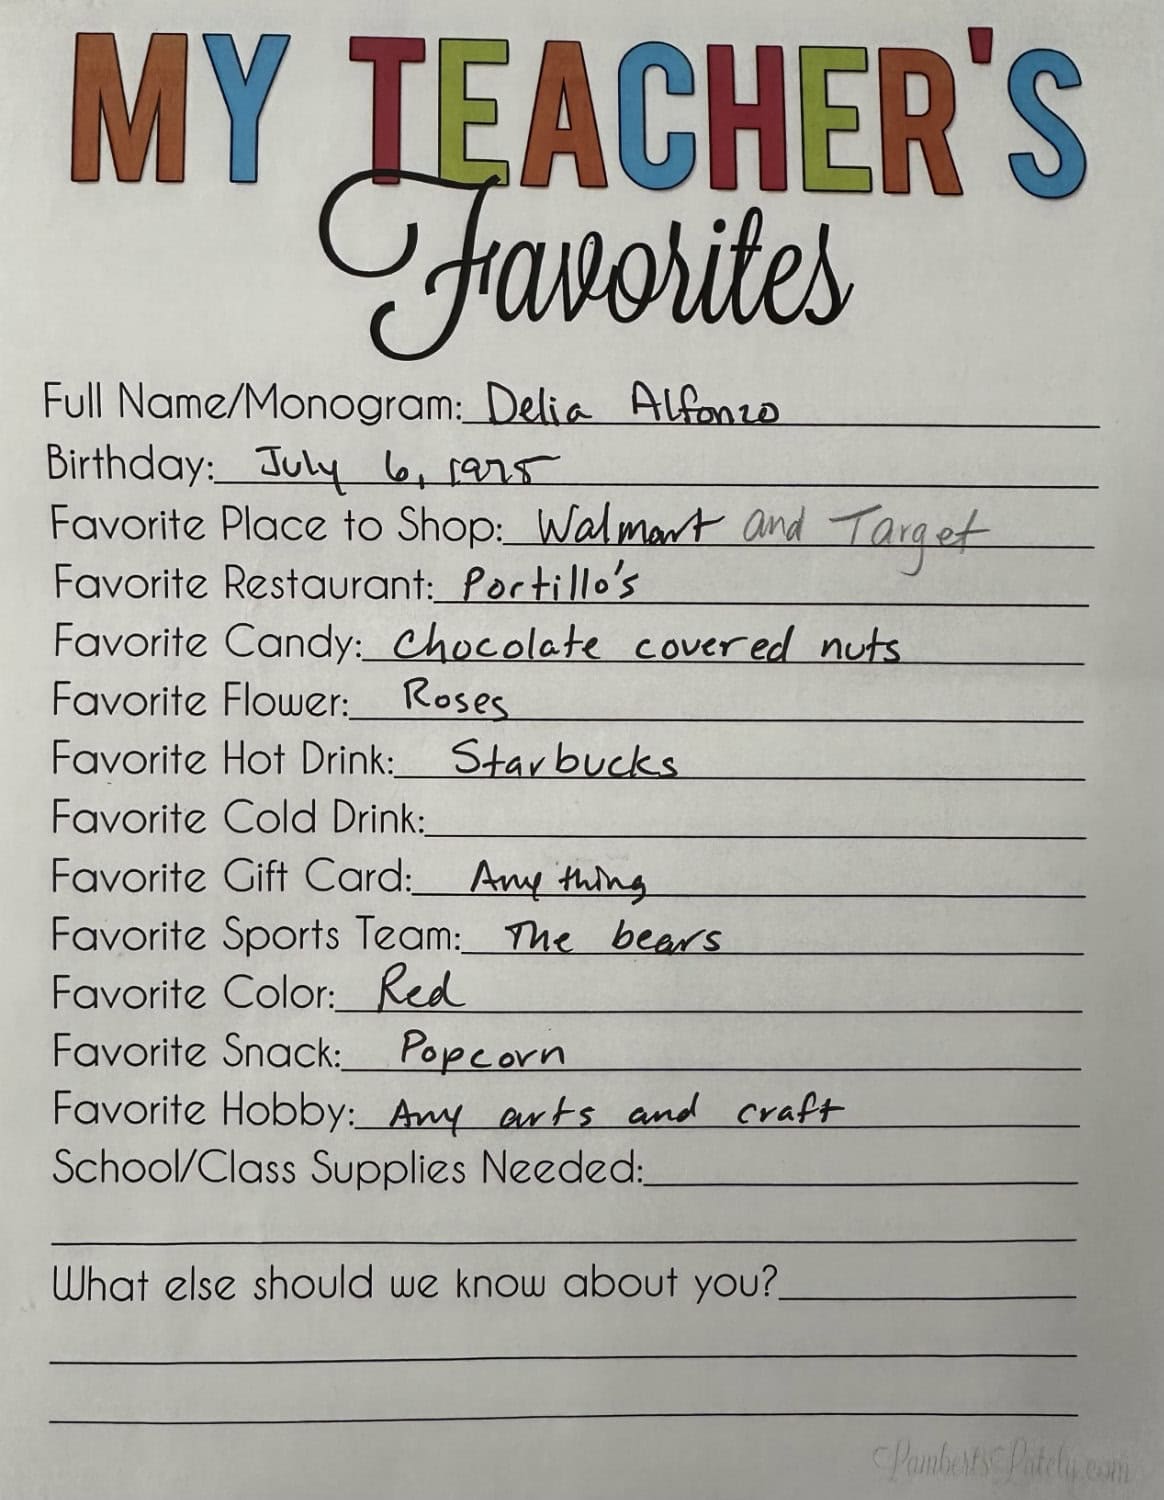 MY TEACHER'S
Favorites
Full Name/Monogram: Delia Alfonzo
Birthday: July 6, 1975
Favorite Place to Shop: Walmart and Target
Favorite Restaurant: Portillo's
Favorite Candy: Chocolate covered nuts
Favorite Flower: Roses
Favorite Hot Drink: Starbucks
Favorite Cold Drink:
Favorite Gift Card: Any thing
Favorite Sports Team: The bears
Favorite Color: Red
Favorite Snack: Popcorn
Favorite Hobby: Any arts and craft
School/Class Supplies Needed:
What else should we know about you?
LambertsLately.com